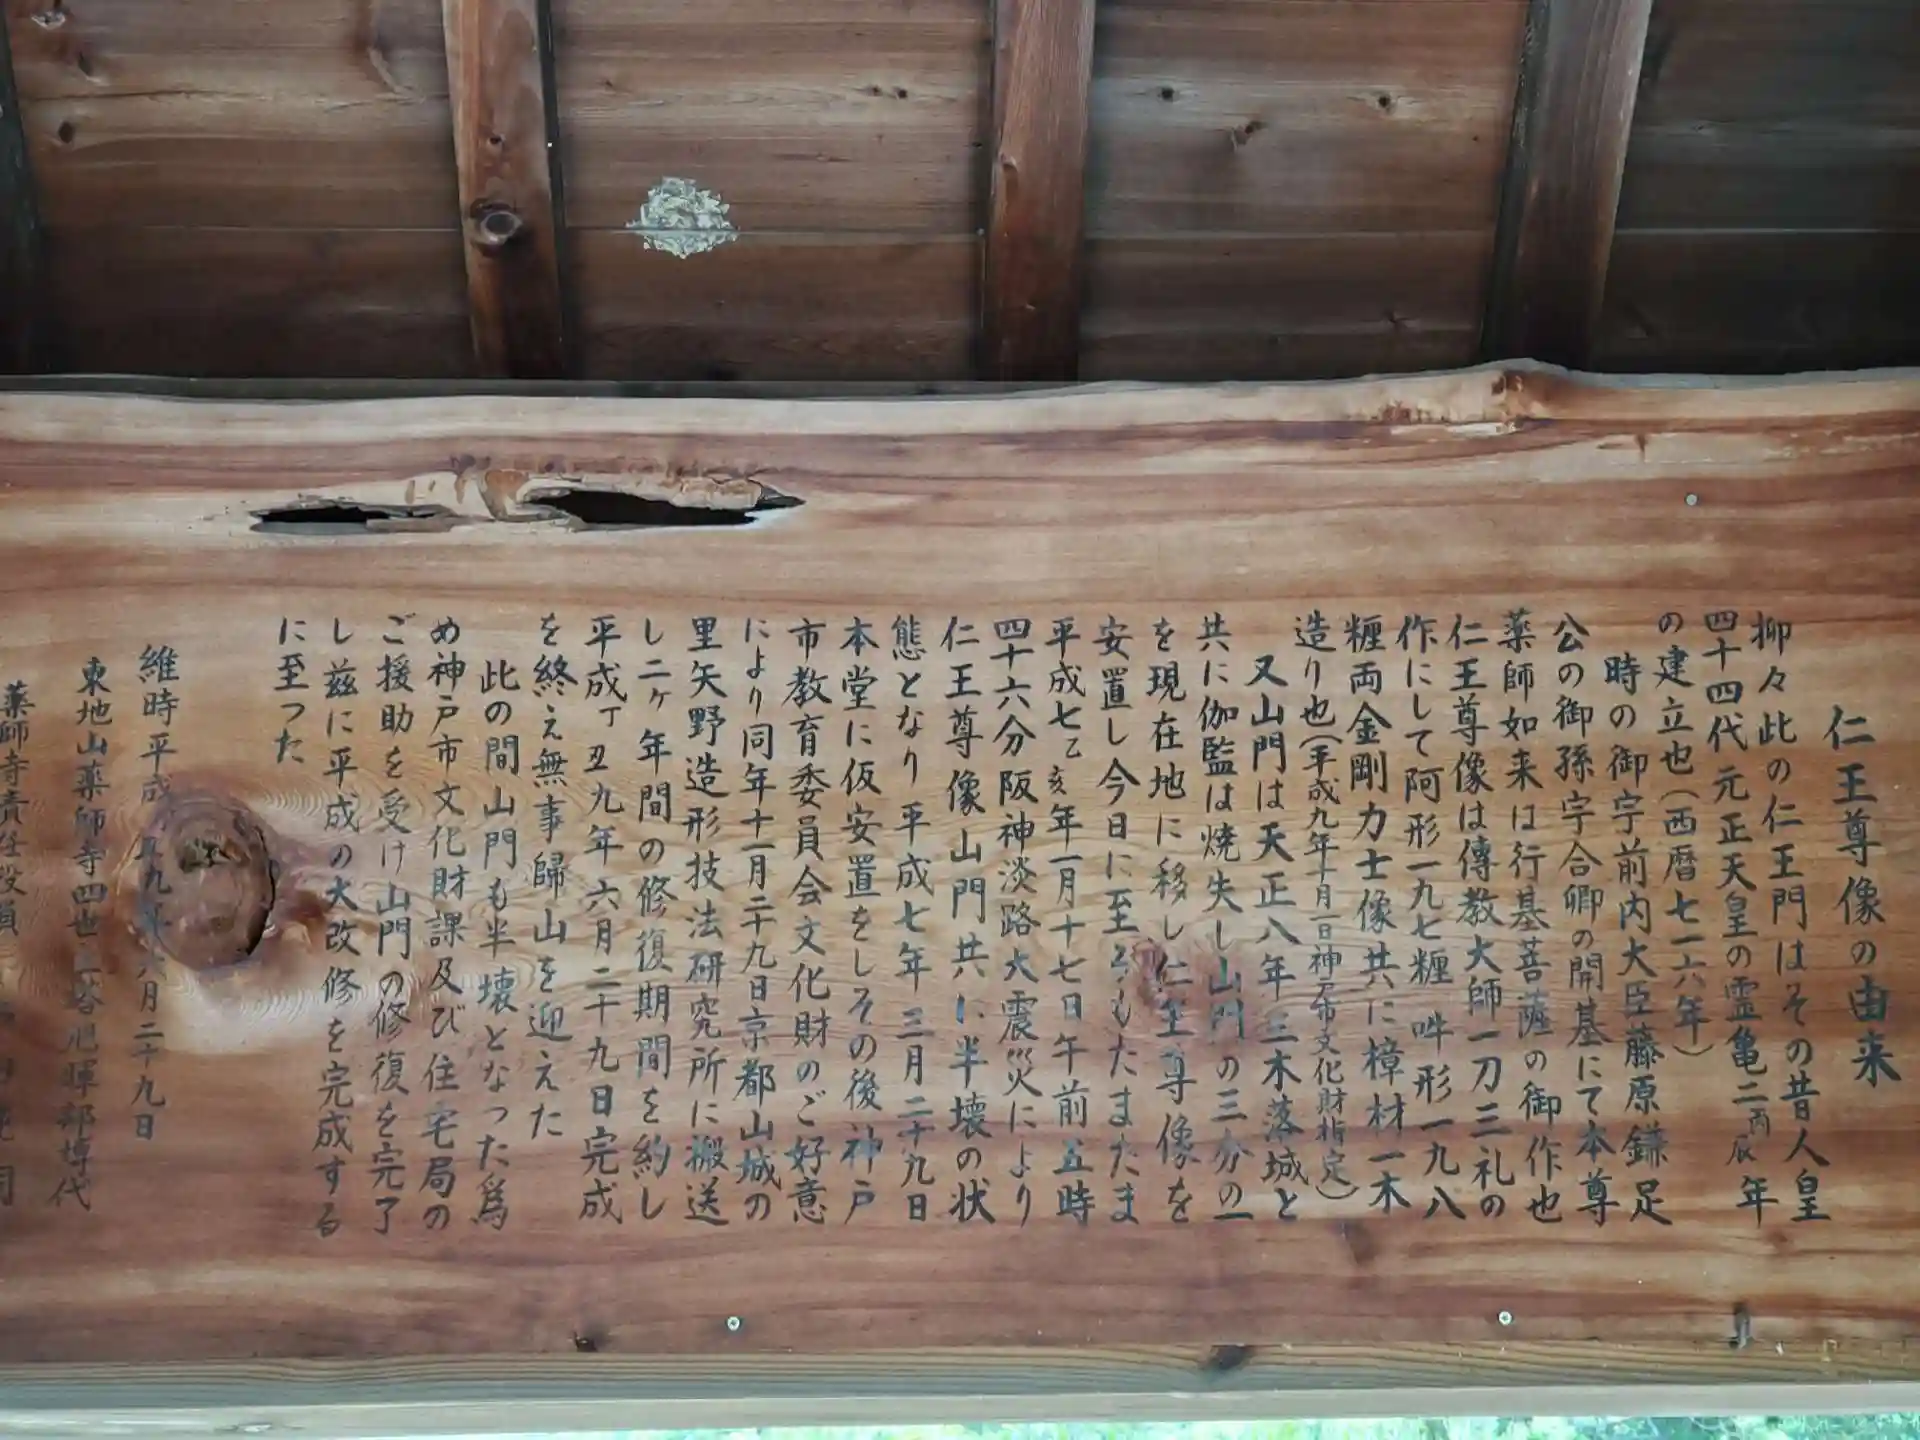 仁王尊像の由来
抑々此の仁王門はその昔人皇
四十四代元正天皇の霊亀二丙辰年
の建立也(西暦七一六年)
時の御宇前内大臣藤原鎌足
公の御孫宇合卿の開基にて本尊
薬師如来は行基菩薩の御作也
仁王尊像は傳教大師一刀三礼の
作にして阿形一九七糎吽形一九八
糎両金剛力士像共に樟材一木
造り也(平成九年十月一日神戸市文化財指定)
又山門は天正八年三木落城と
共に伽監は焼失し山門の三分の一
を現在地に移し仁王尊像を
安置し今日に至るもたまたま
平成七乙亥年一月十七日午前五時
四十六分阪神淡路大震災により
仁王尊像山門共に半壊の状
態となり平成七年三月二十九日
本堂に仮安置をしその後神戸
市教育委員会文化財のご好意
により同年十一月二十九日京都山城の
里矢野造形技法研究所に搬送
し二ヶ年間の修復期間を約し
平成丁丑九年六月二十九日完成
を終え無事歸山を迎えた
此の間山門も半壊となった為
め神戸市文化財課及び住宅局の
ご援助を受け山門の修復を完了
し茲に平成の大改修を完成する
に至った
維時平成 九年六月二十九日
東地山薬師寺四世 暉部博代
薬師寺責任役員 同